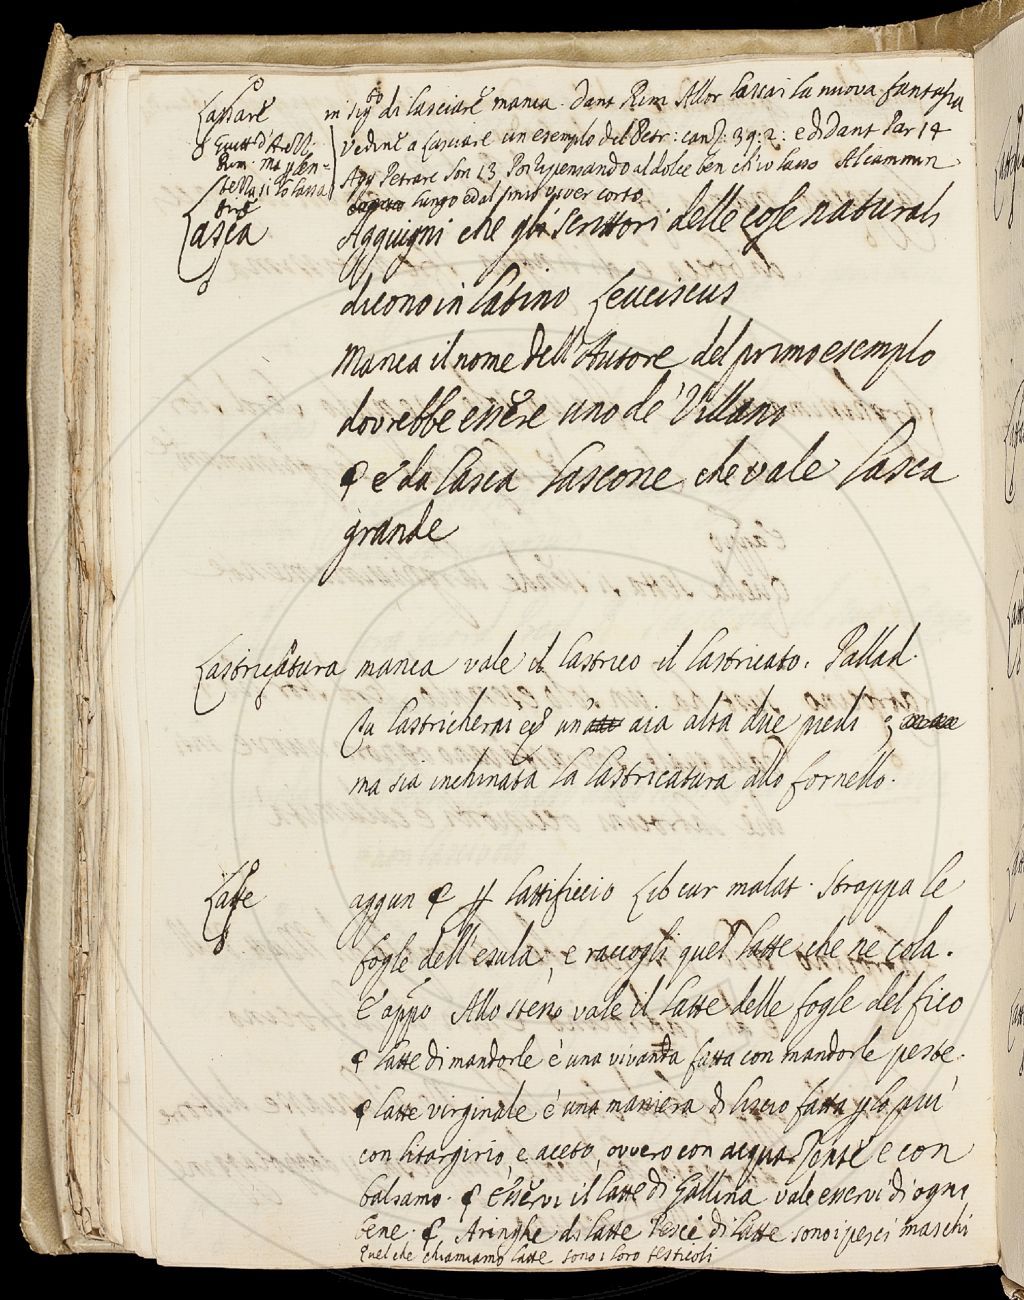 Lassare in sigto di lasciare manca. Dant Rim Allor lassai la nuova fantasia
Guitt d'Arezz. vedine a lasciare un esempio del Petr: canz: 39: 2: e di Dant Par 14
Rim: ma
Agg Petrarc Son 13 Poi ripensando al dolce ben ch'io lasso Al cammin
lungo ed al mio viver corto
Lasca Aggiugni che gli scrittori delle cose naturali
dicono in latino Leuciscus
Manca il nome dell'Autore del primo esempio
dovrebbe essere uno de' Villani
¶ e da lasca lascone che vale lasca
grande
Lastricatura manca vale il lastrico il lastricato. Pallad.
Tu lastricherai un aia alta due piedi
ma sia inchinata la lastricatura allo fornello.
Latte aggiun ¶ per lattificcio Lib cur malat. Strappa le
fogle dell'esula, e raccogli quel latte che ne cola.
E appo Allo stesso vale il latte delle fogle del fico
¶ latte di mandorle è una vivanda fatta con mandorle peste.
¶ latte virginale è una maniera di liscio fatta per lo più
con litargirio, e aceto, ovvero con acqua e con
balsamo. ¶ Esservi il latte di Gallina vale esservi di ogni
bene. ¶ Aringhe di latte Pesci di latte sono i pesci maschi
Quel che chiamiamo latte sono i loro testicoli